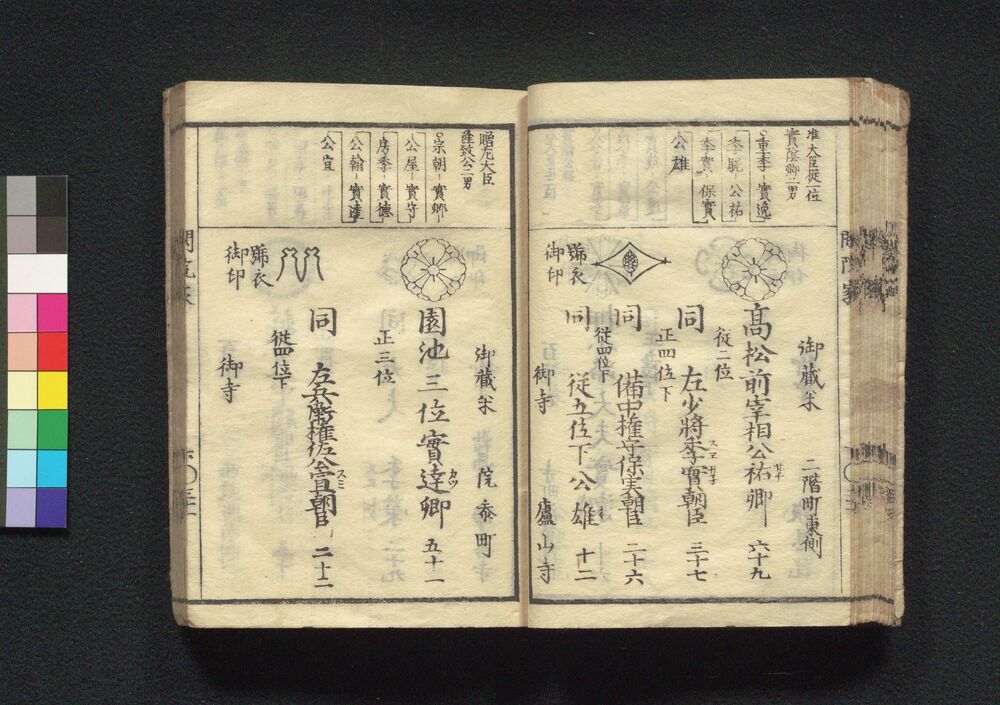 准大臣従一位
實陰卿二男
重季 實逸
季昵 公祐
季實 保實
公雄
御藏米 二階町東側
高松前宰相公祐卿 六十九
従二位
同 左少將季實朝臣 三十七
正四位下
同 備中権守保実朝臣 二十六
従四位下
同 従五位下公雄 十二
御寺 廬山寺
號衣
御印
贈左大臣
隆致公二男
宗朝 實郷
公屋 實守
房季 實德
公翰 實達
公宜
御藏米 院参町
園池三位實達卿 五十一
正三位
同 左兵衛権佐公宜朝臣 二十二
従四位下
御寺
號衣
御印